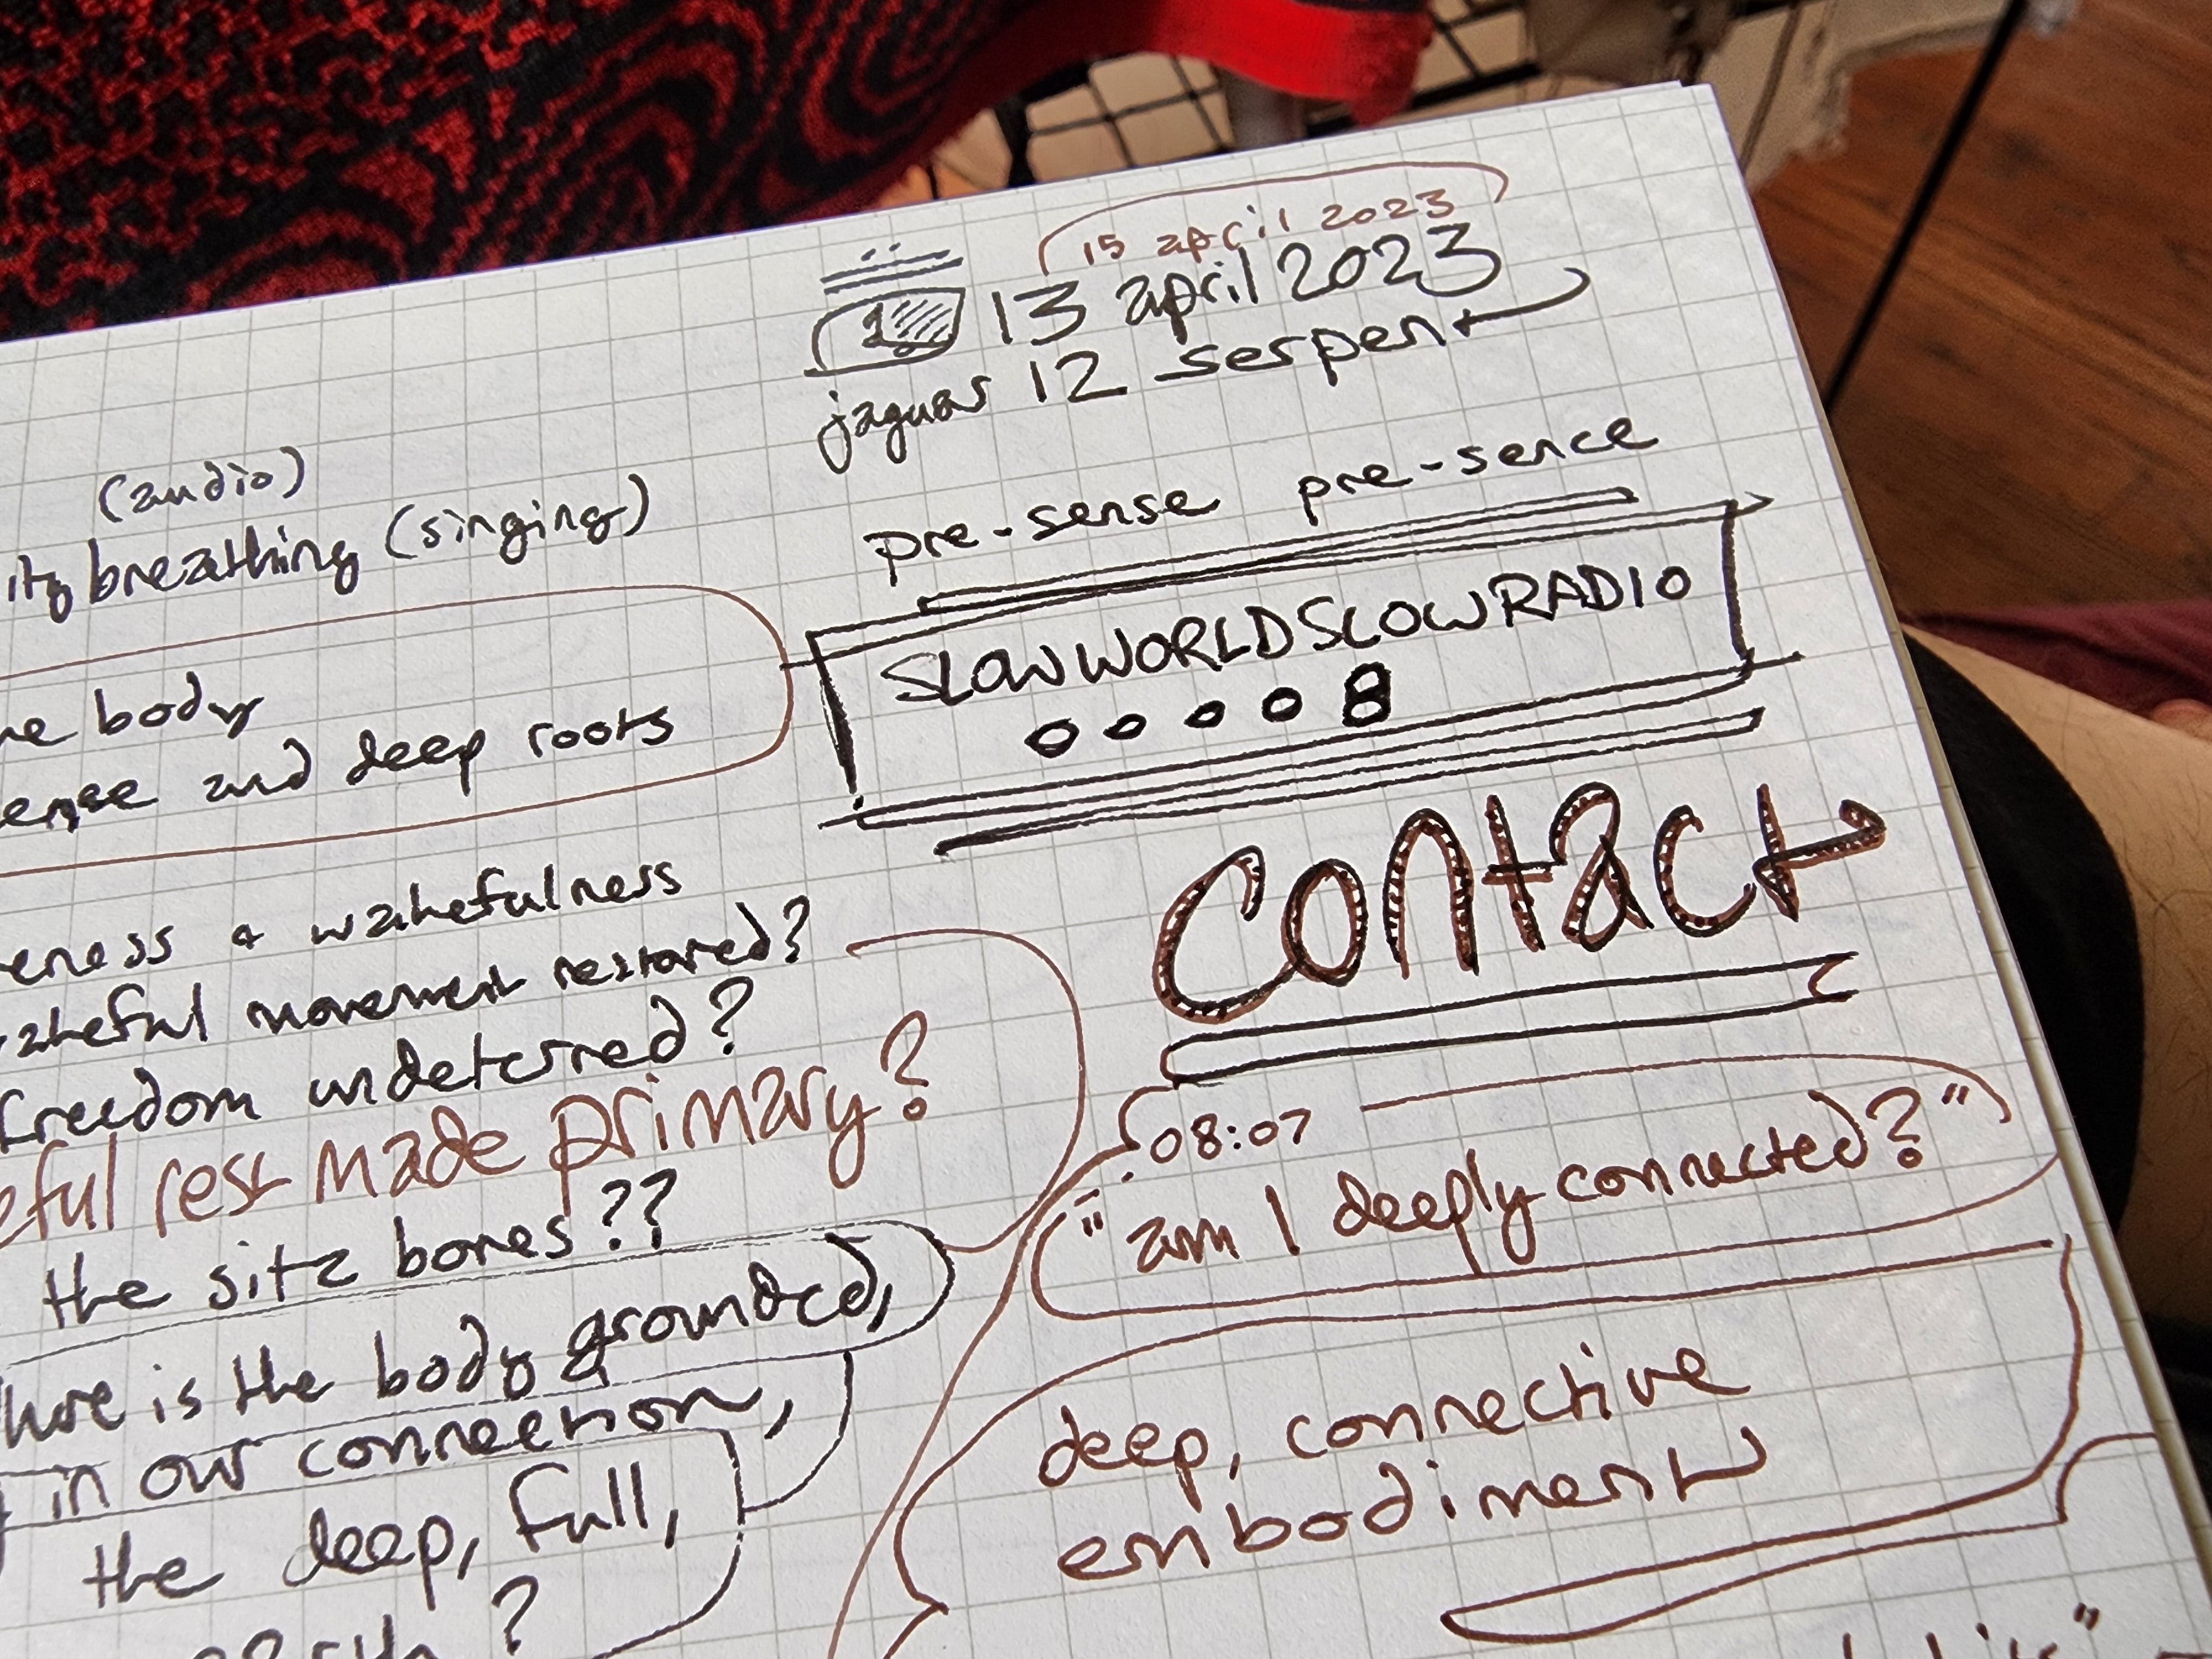 15 april 2023
13 april 2023
jaguar 12 serpent
pre-sense pre-sence
SLOWWORLDSLOWRADIO
00008
contact
08:07
"am I deeply connected?"
deep, connective
embodiment
(audio)
breathing (singing)
body
and deep roots
& wakefulness
movement restored?
freedom undeterred?
rest made primary?
the sitz bones??
is the body grounded,
in our connection,
the deep, full,
?